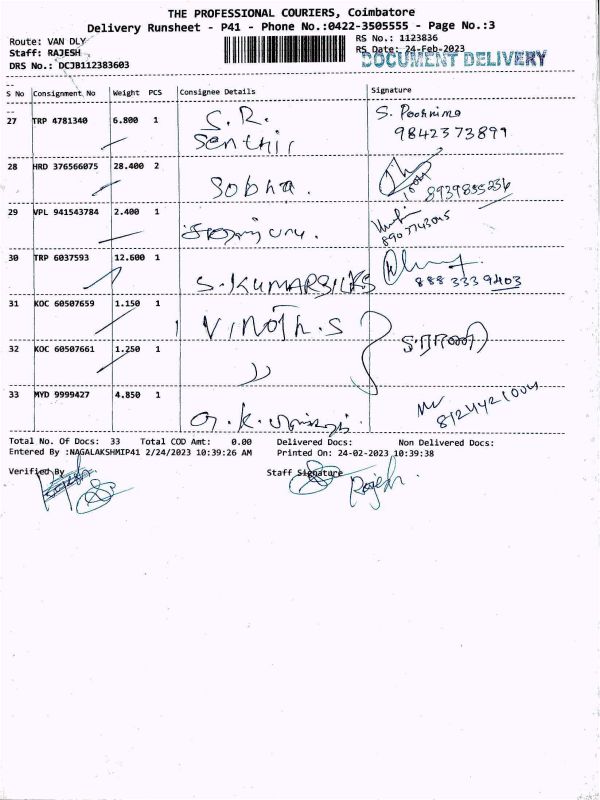 THE PROFESSIONAL COURIERS, Coimbatore
Delivery Runsheet - P41 - Phone No.:0422-3505555 - Page No.:3
Route: VAN DLY
Staff: RAJESH
DRS No.: DCJB112383603
RS No.: 1123836
RS Date: 24-Feb-2023
DOCUMENT DELIVERY
S No Consignment No Weight PCS Consignee Details Signature
27 TRP 4781340 6.800 1 S.R. Senthil S. Poornima
9842373899
28 HRD 376566075 28.400 2 Sobha.
29 VPL 941543784 2.400 1
30 TRP 6037593 12.600 1 S.KUMARSILKS
888 333 9403
31 KOC 60507659 1.150 1 VINOTH.S
32 KOC 60507661 1.250 1 ”
33 MYD 9999427 4.850 1
8124421004
Total No. Of Docs: 33 Total COD Amt: 0.00 Delivered Docs: Non Delivered Docs:
Entered By :NAGALAKSHMIP41 2/24/2023 10:39:26 AM Printed On: 24-02-2023 10:39:38
Verified By Staff Signature
Rajesh.